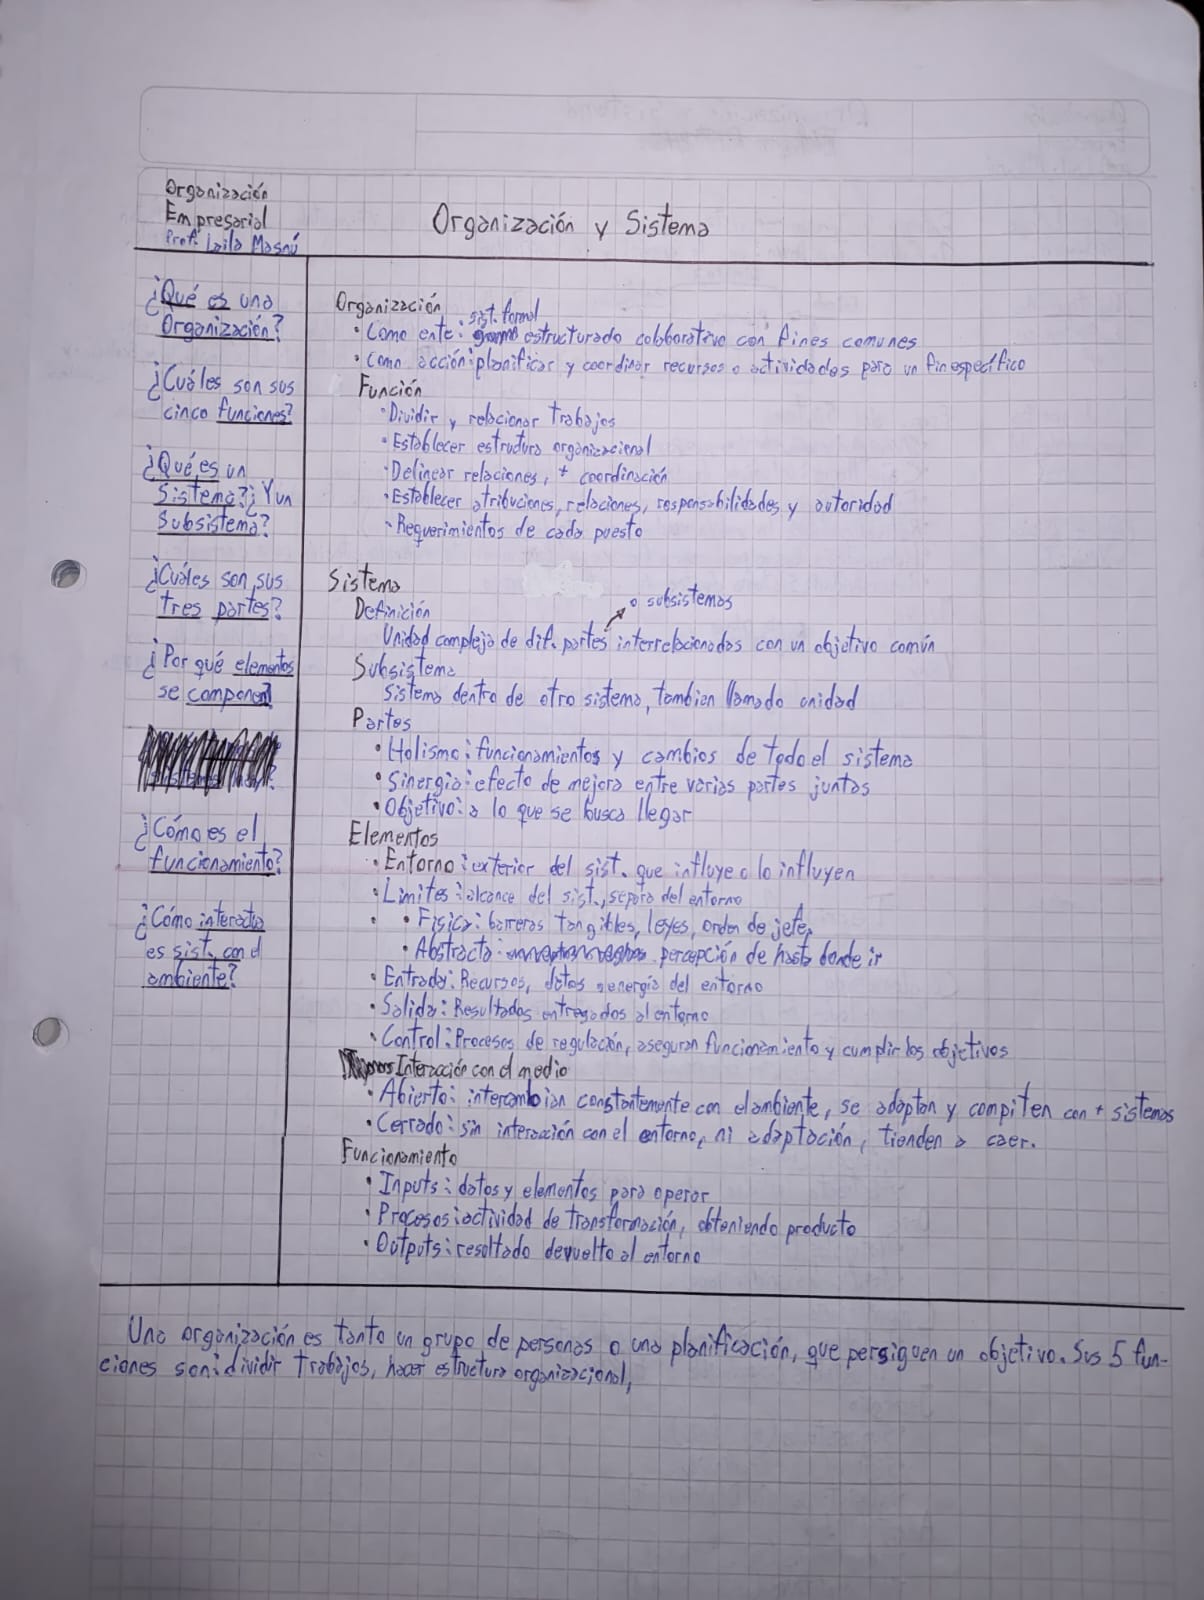 Organización
Empresarial
Prof. Laila Masnú
Organización y Sistema
¿Qué es una
Organización?
¿Cuáles son sus
cinco funciones?
¿Qué es un
Sistema? ¿Y un
Subsistema?
¿Cuáles son sus
tres partes?
¿Por qué elementos
se componen?
¿Cómo es el
funcionamiento?
¿Cómo interactúa
es sist. con el
ambiente?
Organización
• Como ente: sist. formal estructurado colaborativo con fines comunes
• Como acción: planificar y coordinar recursos o actividades para un fin específico
Función
• Dividir y relacionar trabajos
• Establecer estructura organizacional
• Delinear relaciones, + coordinación
• Establecer atribuciones, relaciones, responsabilidades y autoridad
• Requerimientos de cada puesto
Sistema
Definición
o subsistemas
Unidad compleja de dif. partes interrelacionadas con un objetivo común
Subsistema
Sistema dentro de otro sistema, tambien llamado unidad
Partes
• Holismo: funcionamientos y cambios de todo el sistema
• Sinergia: efecto de mejora entre varias partes juntas
• Objetivo: a lo que se busca llegar
Elementos
• Entorno: exterior del sist. que influye o lo influyen
• Limites: alcance del sist., separa del entorno
• Física: barreras tangibles, leyes, orden de jefe,
• Abstracta: percepción de hasta donde ir
• Entrada: Recursos, datos energía del entorno
• Salida: Resultados entregados al entorno
• Control: Procesos de regulación, aseguran funcionamiento y cumplir los objetivos
Interacción con el medio
• Abierto: intercambian constantemente con el ambiente, se adaptan y compiten con + sistemas
• Cerrado: sin interacción con el entorno, ni adaptación, tienden a caer.
Funcionamiento
• Inputs: datos y elementos para operar
• Procesos: actividad de transformación, obteniendo producto
• Outputs: resultado devuelto al entorno
Una organización es tanto un grupo de personas o una planificación, que persiguen un objetivo. Sus 5 fun-
ciones son: dividir trabajos, hacer estructura organizacional,